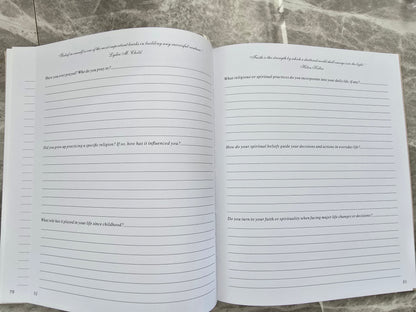 "Belief in oneself is one of the most important bricks in building any successful venture."
Lydia M. Child
Have you ever prayed? Who do you pray to?
Did you grow up practicing a specific religion? If so, how has it influenced you?
What role has it played in your life since childhood?
"Faith is the strength by which a shattered world shall emerge into the light."
Helen Keller
What religious or spiritual practices do you incorporate into your daily life, if any?
How do your spiritual beliefs guide your decisions and actions in everyday life?
Do you turn to your faith or spirituality when facing major life changes or decisions?